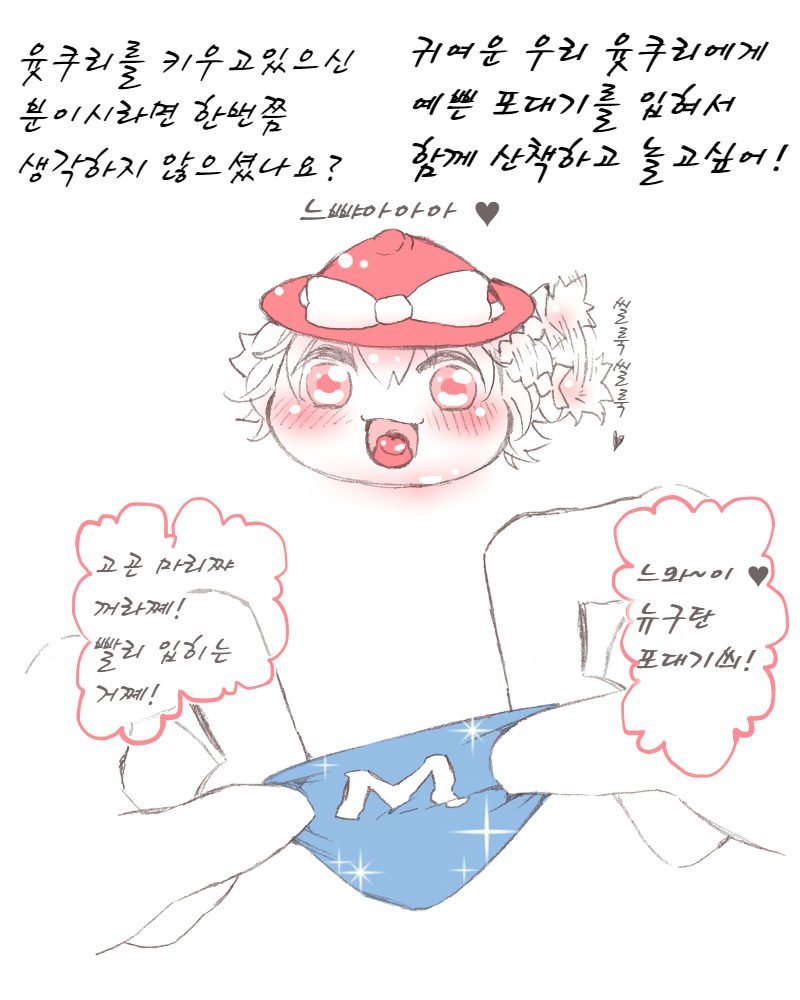 윳쿠리를 키우고있으신
분이시라면 한번쯤
생각하지 않으셨나요?
귀여운 우리 윳쿠리에게
예쁜 포대기를 입혀서
함께 산책하고 놀고싶어!
느빠아아아 ♥
씰룩
씰룩
♥
고곤 마리쨔
꺼라쪠!
빨리 입히는
거쪠!
느와~이 ♥
뉴구탄
포대기씌!
M.